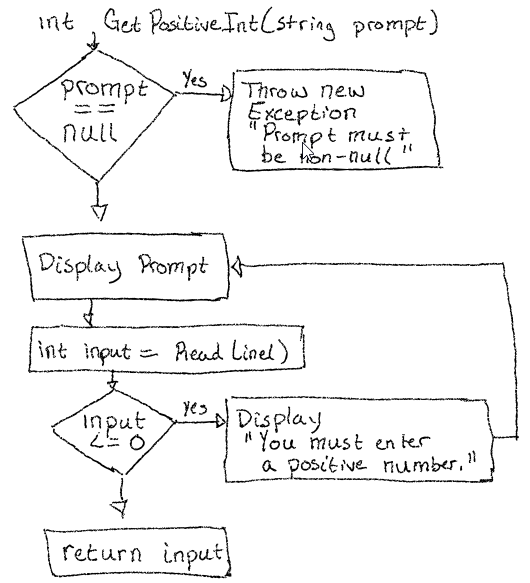 int GetPositiveInt(string prompt)
prompt
==
null
Yes
Throw new
Exception
"Prompt must
be non-null"
Display Prompt
int input = ReadLine()
input
<= 0
Yes
Display
"You must enter
a positive number."
return input